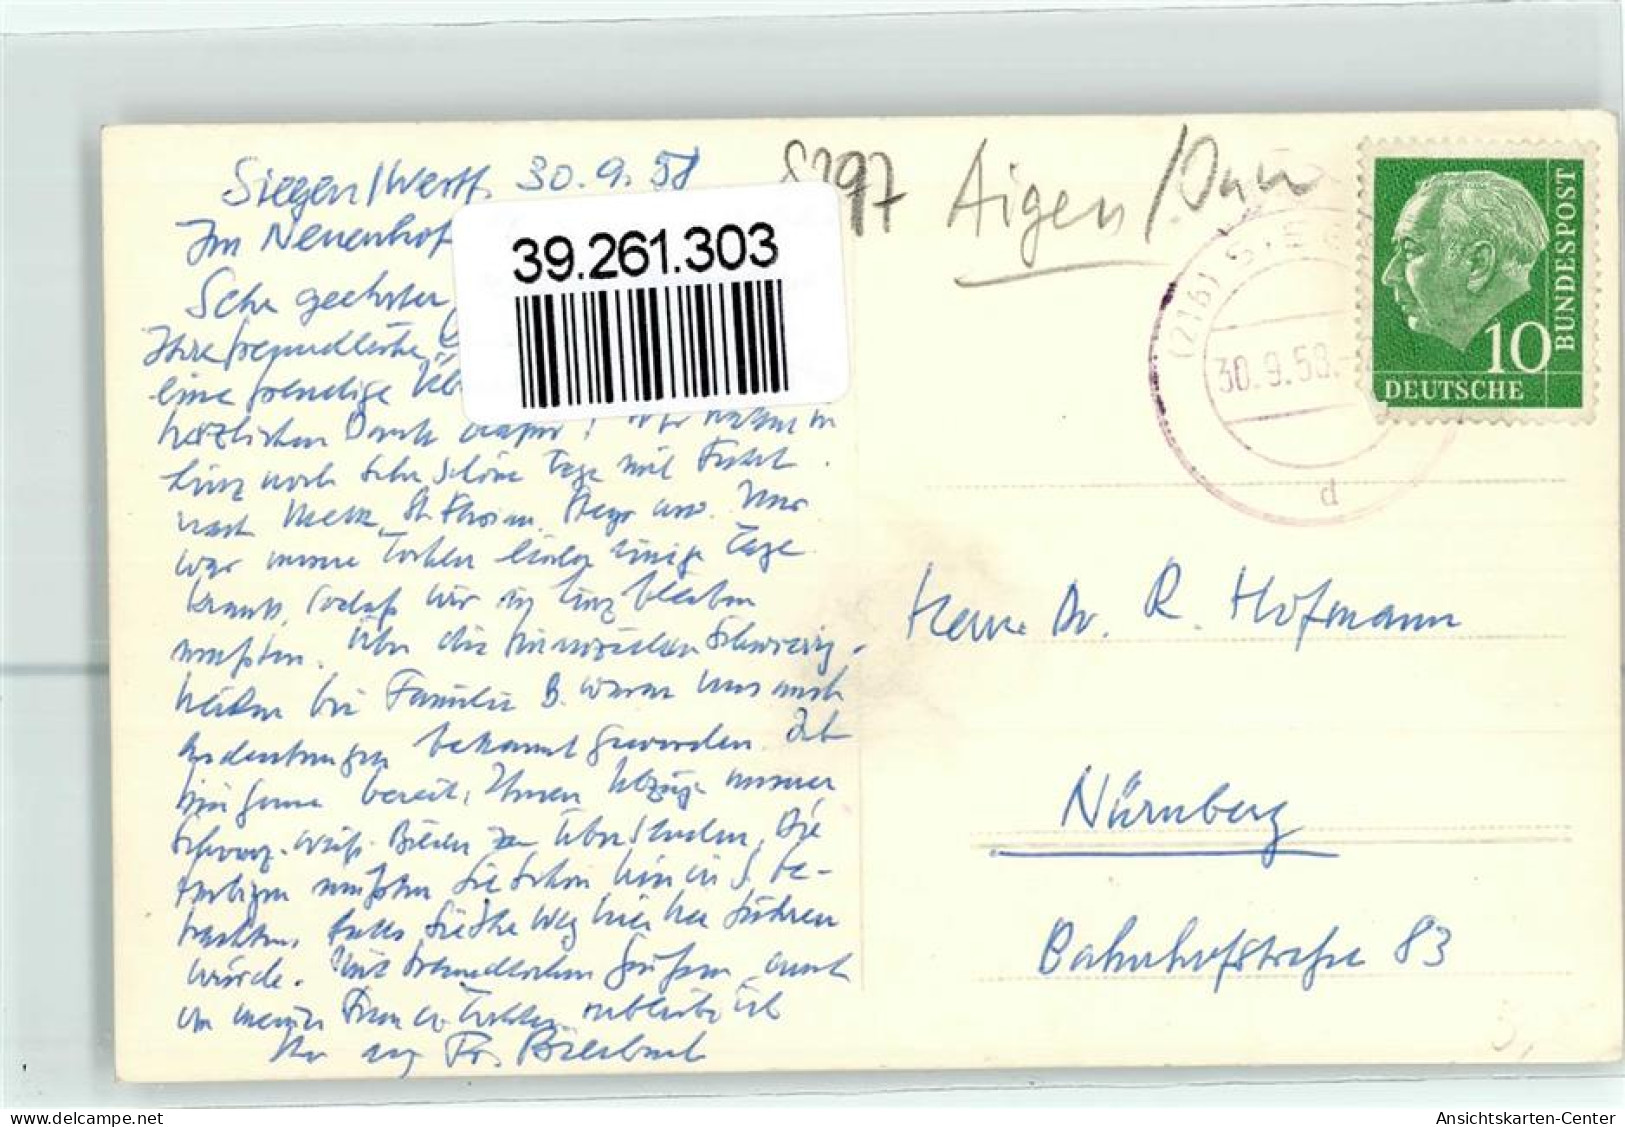 Siegen/Westf. 30.9.58
Im Neuenhof
Sehr geehrter
Ihre freundliche
eine freudige
herzlichen Dank dafür! Wir hatten in
Linz noch sehr schöne Tage mit Fahrt
nach Melk, St. Florian, Steyr usw. Nur
war unsere Tochter leider einige Tage
krank, sodaß wir in Linz bleiben
mußten. Über die finanziellen Schwierig-
keiten bei Familie B. waren uns auch
Andeutungen bekannt geworden. Ich
bin gerne bereit, Ihnen Abzüge unserer
Schwarz-weiß-Bilder zu übersenden. Die
farbigen müßten Sie schon hier in S. be-
trachten, falls Sie Ihr Weg hierher führen
würde. Mit freundlichen Grüßen, auch
von meiner Frau u. Tochter verbleibe ich
Ihr erg. Fr.
39.261.303
8397 Aigen/
(21b) SIEGEN
30.9.58.-
d
10
DEUTSCHE
BUNDESPOST
Herrn Dr. R. Hofmann
Nürnberg
Bahnhofstraße 83
oldthing.de
Ansichtskarten-Center